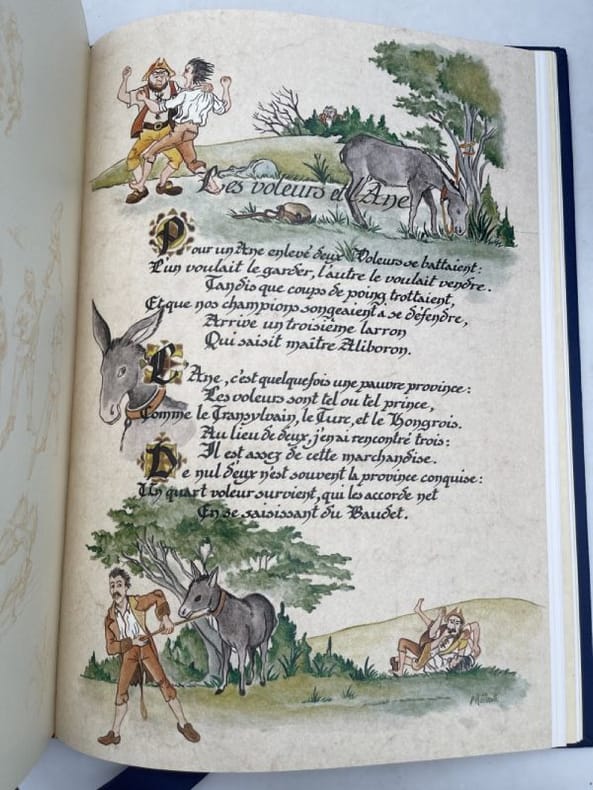 Les voleurs et l'Ane
Pour un Ane enlevé deux Voleurs se battaient :
L'un voulait le garder, l'autre le voulait vendre.
Tandis que coups de poing trottaient,
Et que nos champions songeaient a se défendre,
Arrive un troisième larron
Qui saisit maître Aliboron.
L'Ane, c'est quelquefois une pauvre province :
Les voleurs sont tel ou tel prince,
Comme le Transylvain, le Turc, et le Hongrois.
Au lieu de deux, j'en ai rencontré trois :
Il est assez de cette marchandise.
De nul d'eux n'est souvent la province conquise :
Un quart voleur survient, qui les accorde net
En se saisissant du Baudet.